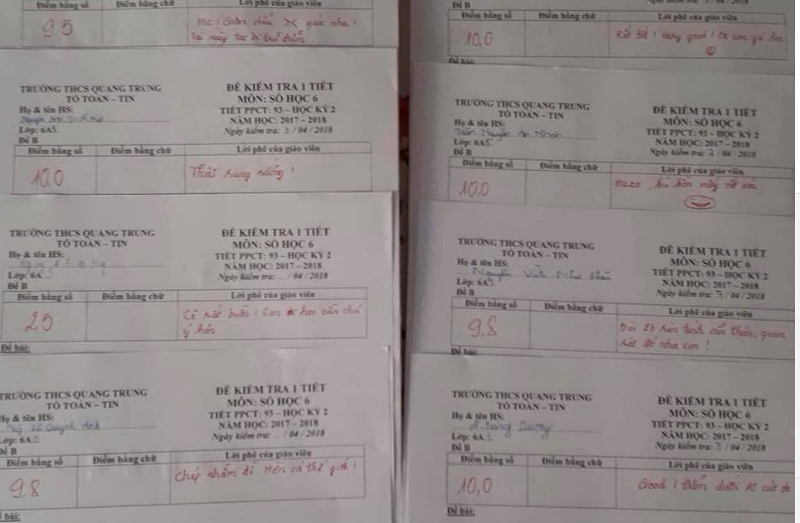 Điểm bằng số Điểm bằng chữ Lời phê của giáo viên
9.5
TRƯỜNG THCS QUANG TRUNG
TỔ TOÁN – TIN
Họ & tên HS:
Lớp: 6A5
Đề B
ĐỀ KIỂM TRA 1 TIẾT
MÔN: SỐ HỌC 6
TIẾT PPCT: 93 – HỌC KỲ 2
NĂM HỌC: 2017 – 2018
Ngày kiểm tra: / 04 / 2018
Điểm bằng số Điểm bằng chữ Lời phê của giáo viên
10,0 Thật sung sướng !
TRƯỜNG THCS QUANG TRUNG
TỔ TOÁN – TIN
Họ & tên HS:
Lớp: 6A
Đề B
ĐỀ KIỂM TRA 1 TIẾT
MÔN: SỐ HỌC 6
TIẾT PPCT: 93 – HỌC KỲ 2
NĂM HỌC: 2017 – 2018
Ngày kiểm tra: / 04 / 2018
Điểm bằng số Điểm bằng chữ Lời phê của giáo viên
2.5 Cô rất buồn ! Con học cần chú
ý hơn
Đề bài:
TRƯỜNG THCS QUANG TRUNG
TỔ TOÁN – TIN
Họ & tên HS:
Quỳnh Anh
Lớp: 6A
Đề B
ĐỀ KIỂM TRA 1 TIẾT
MÔN: SỐ HỌC 6
TIẾT PPCT: 93 – HỌC KỲ 2
NĂM HỌC: 2017 – 2018
Ngày kiểm tra: / 04 / 2018
Điểm bằng số Điểm bằng chữ Lời phê của giáo viên
9,8
Đề bài:
Đề B
Điểm bằng số Điểm bằng chữ Lời phê của giáo viên
10,0 Rất tốt ! Very good !
TRƯỜNG THCS QUANG TRUNG
TỔ TOÁN – TIN
Họ & tên HS:
Trần Nguyễn An Nhiên
Lớp: 6A5
Đề B
ĐỀ KIỂM TRA 1 TIẾT
MÔN: SỐ HỌC 6
TIẾT PPCT: 93 – HỌC KỲ 2
NĂM HỌC: 2017 – 2018
Ngày kiểm tra: / 04 / 2018
Điểm bằng số Điểm bằng chữ Lời phê của giáo viên
10,0
TRƯỜNG THCS QUANG TRUNG
TỔ TOÁN – TIN
Họ & tên HS:
Nguyễn
Lớp: 6A
Đề B
ĐỀ KIỂM TRA 1 TIẾT
MÔN: SỐ HỌC 6
TIẾT PPCT: 93 – HỌC KỲ 2
NĂM HỌC: 2017 – 2018
Ngày kiểm tra: / 04 / 2018
Điểm bằng số Điểm bằng chữ Lời phê của giáo viên
9,8 cẩn thận,
con !
Đề bài:
TRƯỜNG THCS QUANG TRUNG
TỔ TOÁN – TIN
Họ & tên HS:
Dương
Lớp: 6A
Đề B
ĐỀ KIỂM TRA 1 TIẾT
MÔN: SỐ HỌC 6
TIẾT PPCT: 93 – HỌC KỲ 2
NĂM HỌC: 2017 – 2018
Ngày kiểm tra: / 04 / 2018
Điểm bằng số Điểm bằng chữ Lời phê của giáo viên
10,0 Good !
Đề bài: